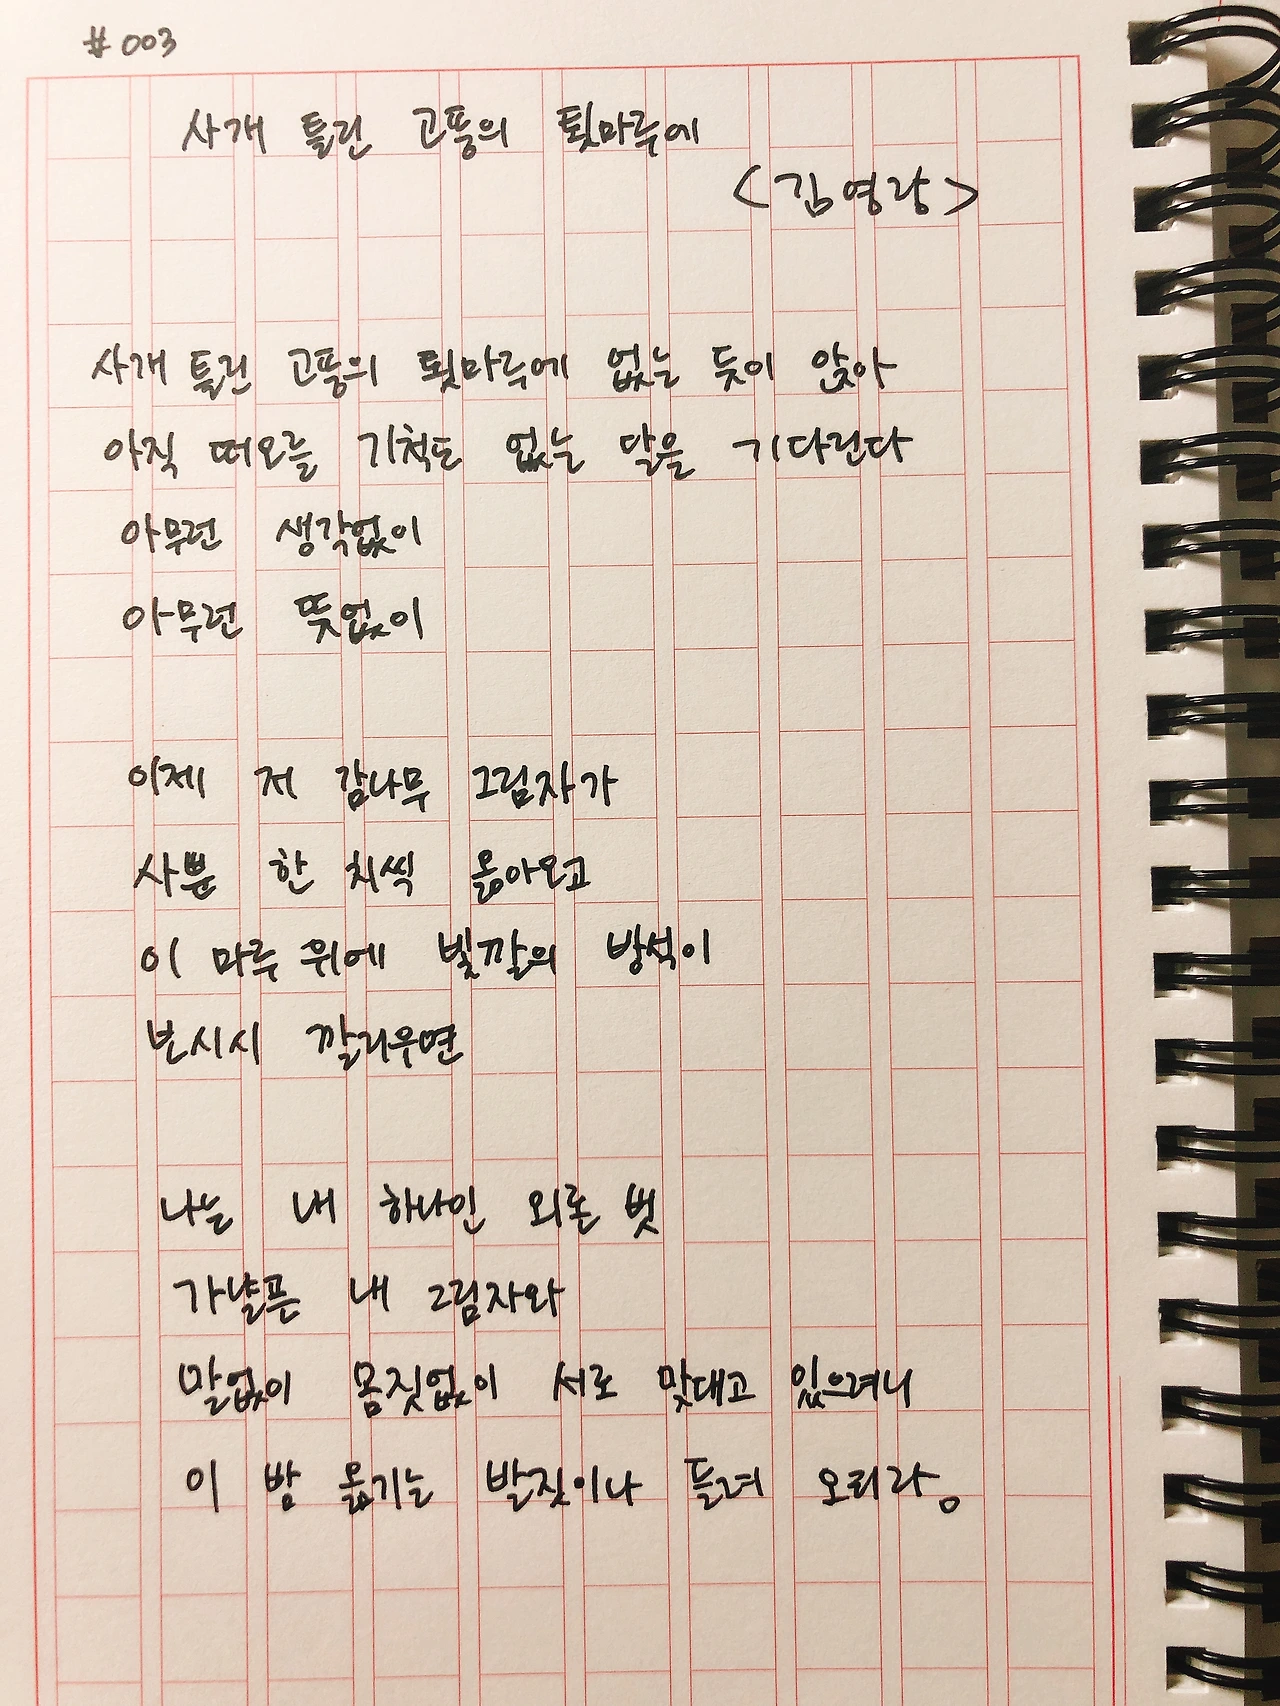 # 003
사개 틀린 고풍의 툇마루에
<김영랑>
사개 틀린 고풍의 툇마루에 없는 듯이 앉아
아직 떠오를 기척도 없는 달을 기다린다
아무런 생각없이
아무런 뜻없이
이제 저 감나무 그림자가
사뿐 한 치씩 옮아오고
이 마루 위에 빛깔의 방석이
보시시 깔리우면
나는 내 하나인 외론 벗
가냘픈 내 그림자와
말없이 몸짓없이 서로 맞대고 있으려니
이 밤 옮기는 발짓이나 들려 오리라。